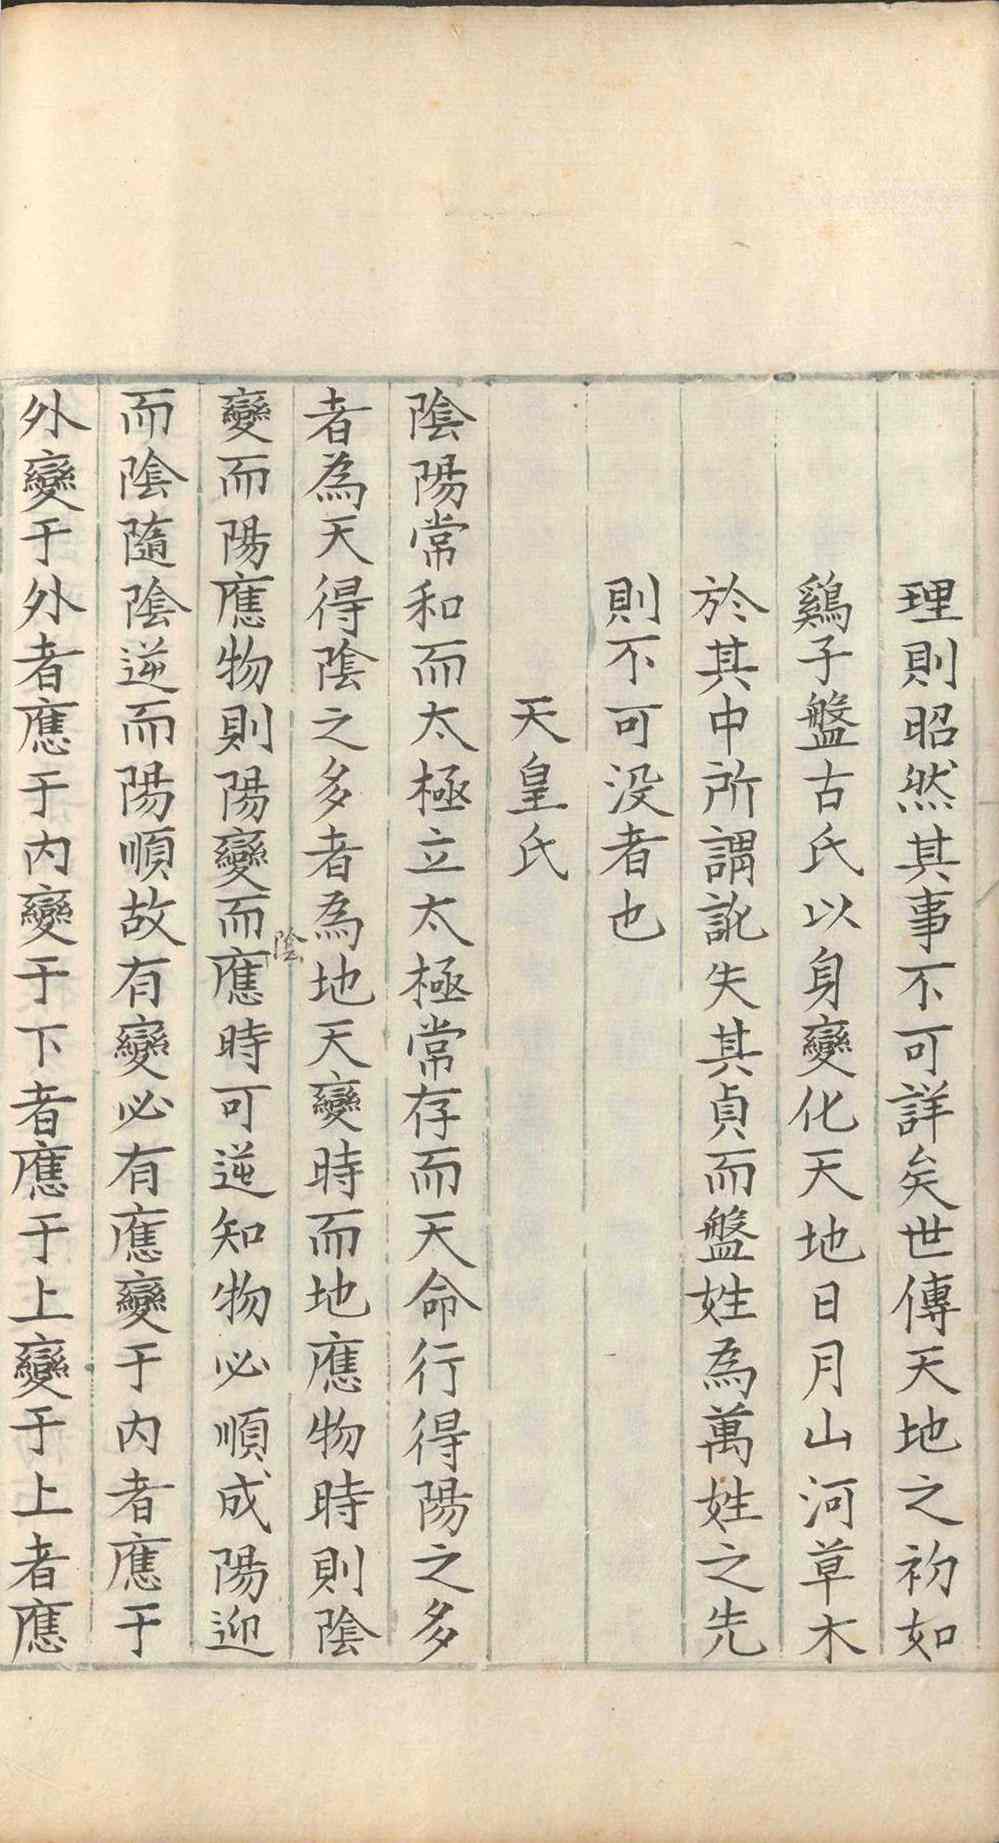 理則昭然其事不可詳矣世傳天地之初如
鷄子盤古氏以身變化天地日月山河草木
於其中所謂訛失其貞而盤姓為萬姓之先
則不可没者也
天皇氏
陰陽常和而太極立太極常存而天命行得陽之多
者為天得陰之多者為地天變時而地應物時則陰
變而陽應物則陽變而陰應時可逆知物必順成陽迎
而陰隨陰逆而陽順故有變必有應變于内者應于
外變于外者應于内變于下者應于上變于上者應